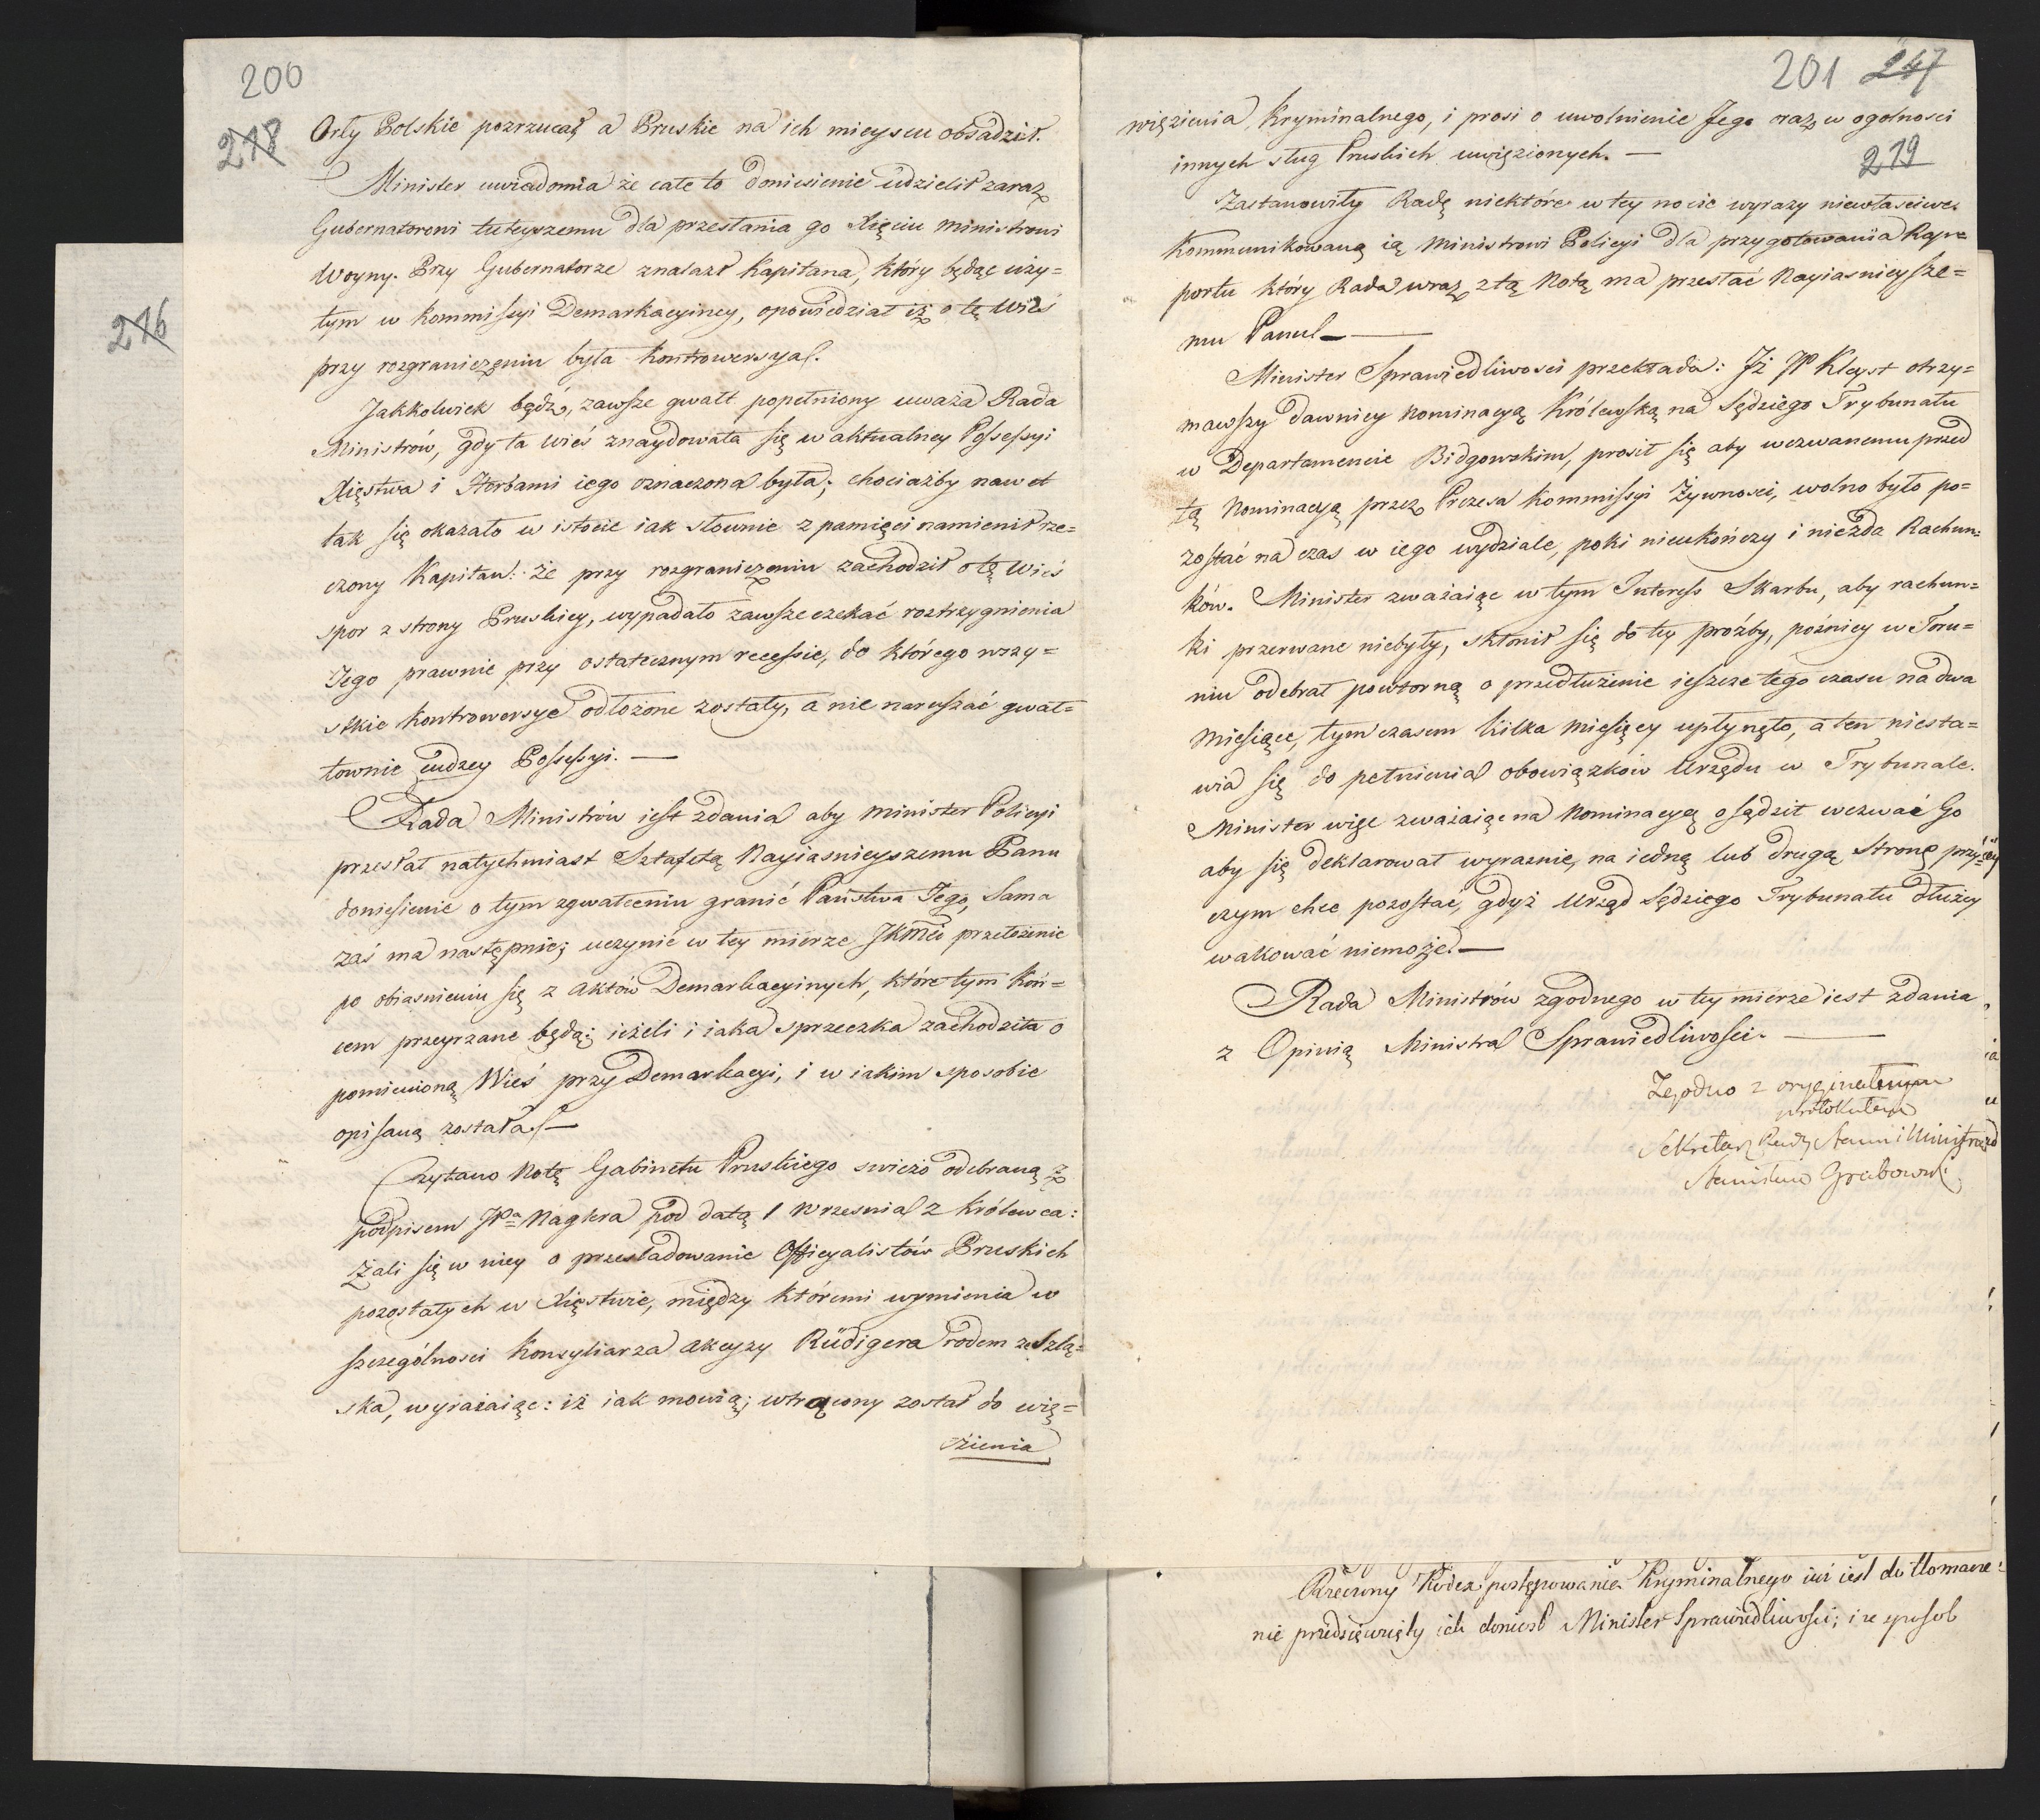 200
218
Orły Polskie pozrzucał a Pruskie na ich mieyscu obsadził.
Minister uwiadomia że całe to doniesienie udzielił zaraz
Gubernatorowi tuteyszemu dla przesłania go Xięciu Ministrowi
Woyny. Przy Gubernatorze znalazł Kapitana, który będąc uży=
tym w Kommissyi Demarkacyiney, opowiedział iż o tę Wieś
przy rozgraniczeniu była Kontrowersya.
Jakkolwiek bądz, zawsze gwałt popełniony uważa Rada
Ministrów, gdy ta Wieś znaydowała się w aktualney Possessyi
Xięstwa i Herbami iego oznaczona była; chociażby nawet
tak się okazało w istocie iak słownie z pamięci namienił rze=
czony Kapitan: że przy rozgraniczeniu zachodził o tę Wieś
spor z strony Pruskiey, wypadało zawsze czekać roztrzygnienia
Jego prawnie przy ostatecznym recessie, do którego wszy=
stkie Kontrowersye odłożone zostały, a nie naruszać gwał=
townie cudzey Possessyi. —
Rada Ministrów iest zdania aby Minister Policyi
przesłał natychmiast Sztafetą Nayiasnieyszemu Panu
doniesienie o tym zgwałceniu granic Państwa Jego, Sama
zaś ma następnie; uczynić w tey mierze JKMci przełożenie
po obiasnieniu się z Aktów Demarkacyinych, które tym koń=
cem przeyrzane będą; ieżeli i iaka sprzeczka zachodziła o
pomienioną Wieś przy Demarkacyi, i w iakim sposobie
opisaną została. —
Czytano Notę Gabinetu Pruskiego swieżo odebraną z
podpisem JPa Naglera pod datą 1 Wrzesnia z Królewca:
Żali się w niey o przesladowanie Officyalistów Pruskich
pozostałych w Xięstwie, między któremi wymienia w
szczególnosci Konsyliarza Akcyzy Rüdigera rodem ze Szlą=
ska, wyrażaiąc: iż iak mowią; wtrącony został do wię=
zienia
216
201 247
219
więzienia Kryminalnego, i prosi o uwolnienie Jego oraz w ogolnosci
innych sług Pruskich uwięzionych. —
Zastanowiły Radę niektóre w tey nocie wyrazy niewłasciwe.
Kommunikowaną ią Ministrowi Policyi dla przygotowania Rap=
portu który Rada wraz z tą Notą ma przesłać Nayiasnieysze=
mu Panu. —
Minister Sprawiedliwosci przekłada: Jż JP Kleyst otrzy=
mawszy dawniey Nominacyą Królewską na Sędziego Trybunału
w Departamencie Bidgowskim, prosił się aby wezwanemu przed
tą Nominacyą przez Prezesa Kommissyi Żywnosci, wolno było po=
zostać na czas w iego wydziale, poki nieukończy i niezda Rachun=
ków. Minister zważaiąc w tym Interess Skarbu, aby rachun=
ki przerwane niebyły, skłonił się do tey prózby, pózniey w Toru=
niu odebrał powtorną o przedłużenie ieszcze tego czasu na dwa
Miesiące, tym czasem kilka Miesięcy upłynęło, a ten niesta=
wia się do pełnienia obowiązków Urzędu w Trybunale.
Minister więc zważaiąc na Nominacyą osądził wezwać Go
aby się deklarował wyraznie, na iedną lub drugą Stronę przy
czym chce pozostać, gdyż Urząd Sędziego Trybunału dłużey
wakować niemoże. —
Rada Ministrów zgodnego w tey mierze iest zdania
z Opinią Ministra Sprawiedliwosci. —
Zgodno z oryginalnym
protokułem
Sekretarz Rady Stanu i Ministrów
Stanisław Grabowski
Rzeczony Kodex postępowania Kryminalnego iuż iest do tłomacze=
nie przedsięwzięty ich doniosł Minister Sprawiedliwosci; i ze sposob